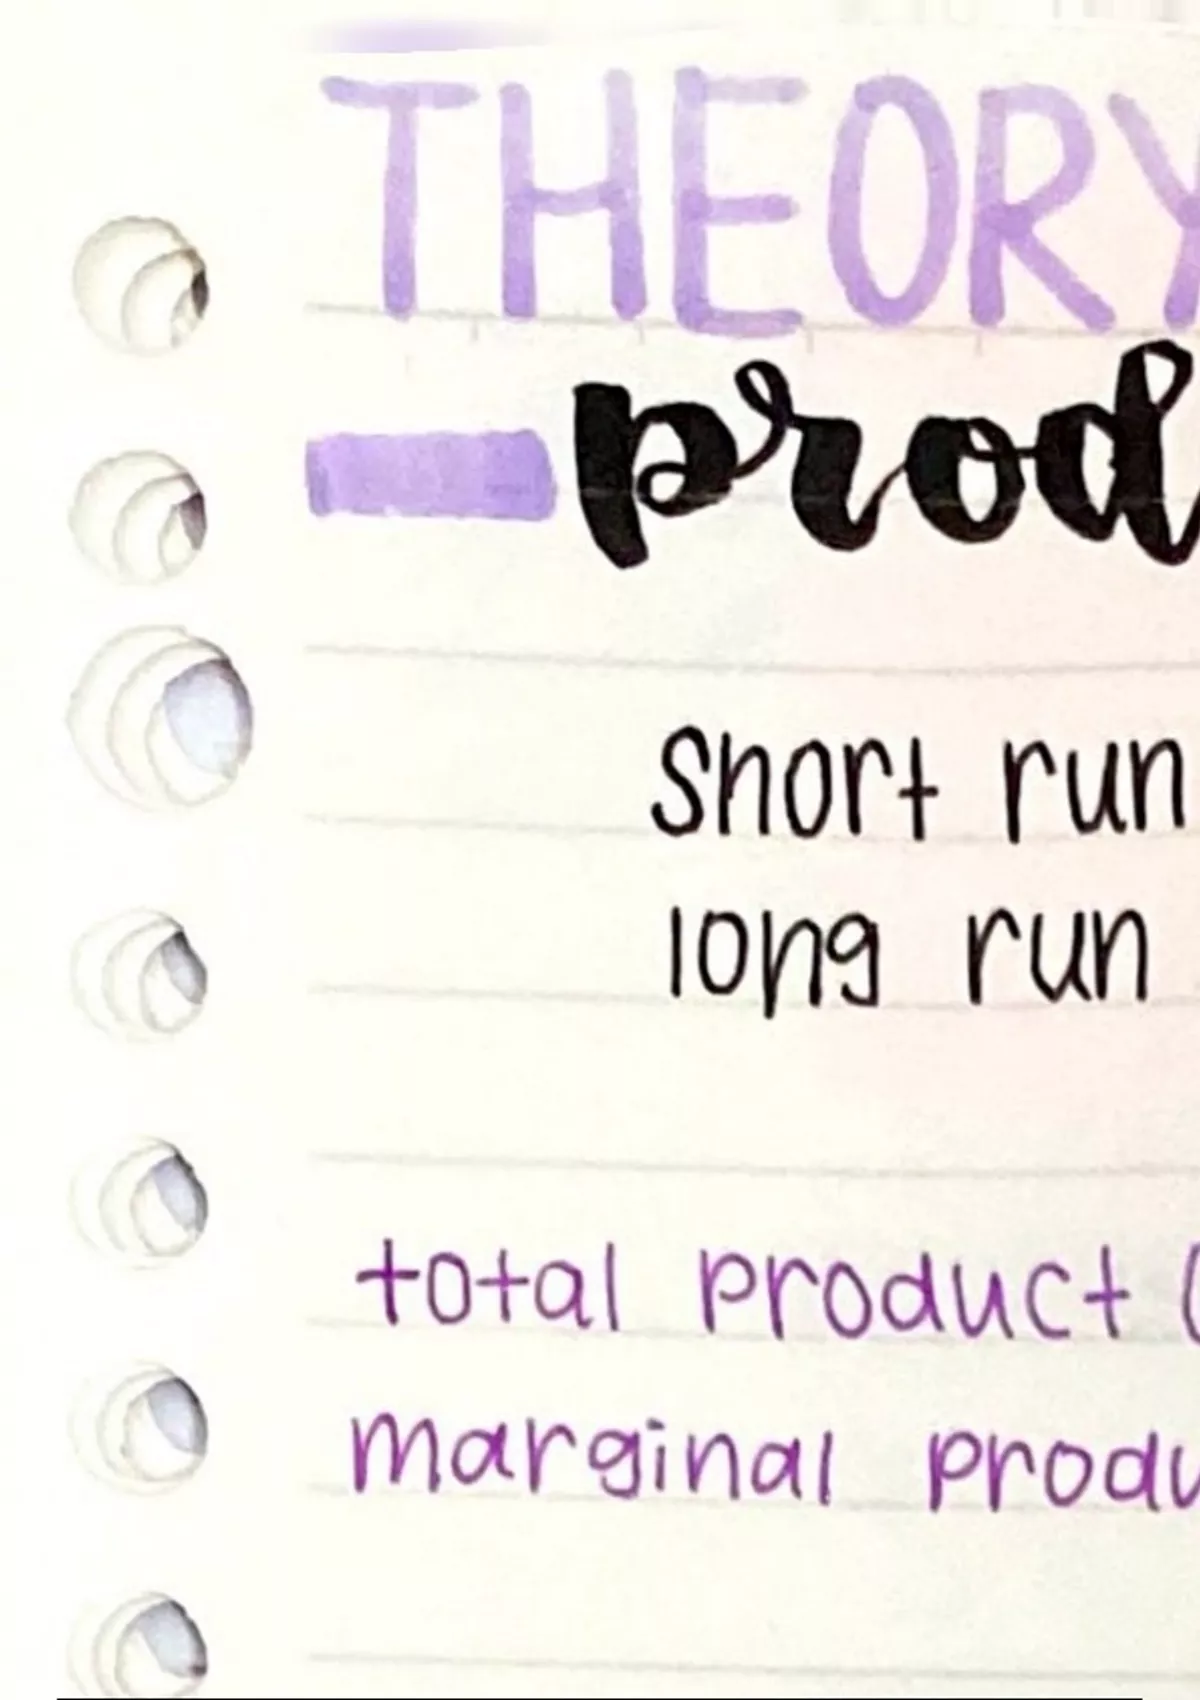 THEORY
prod
short run
long run
total product (
marginal produ